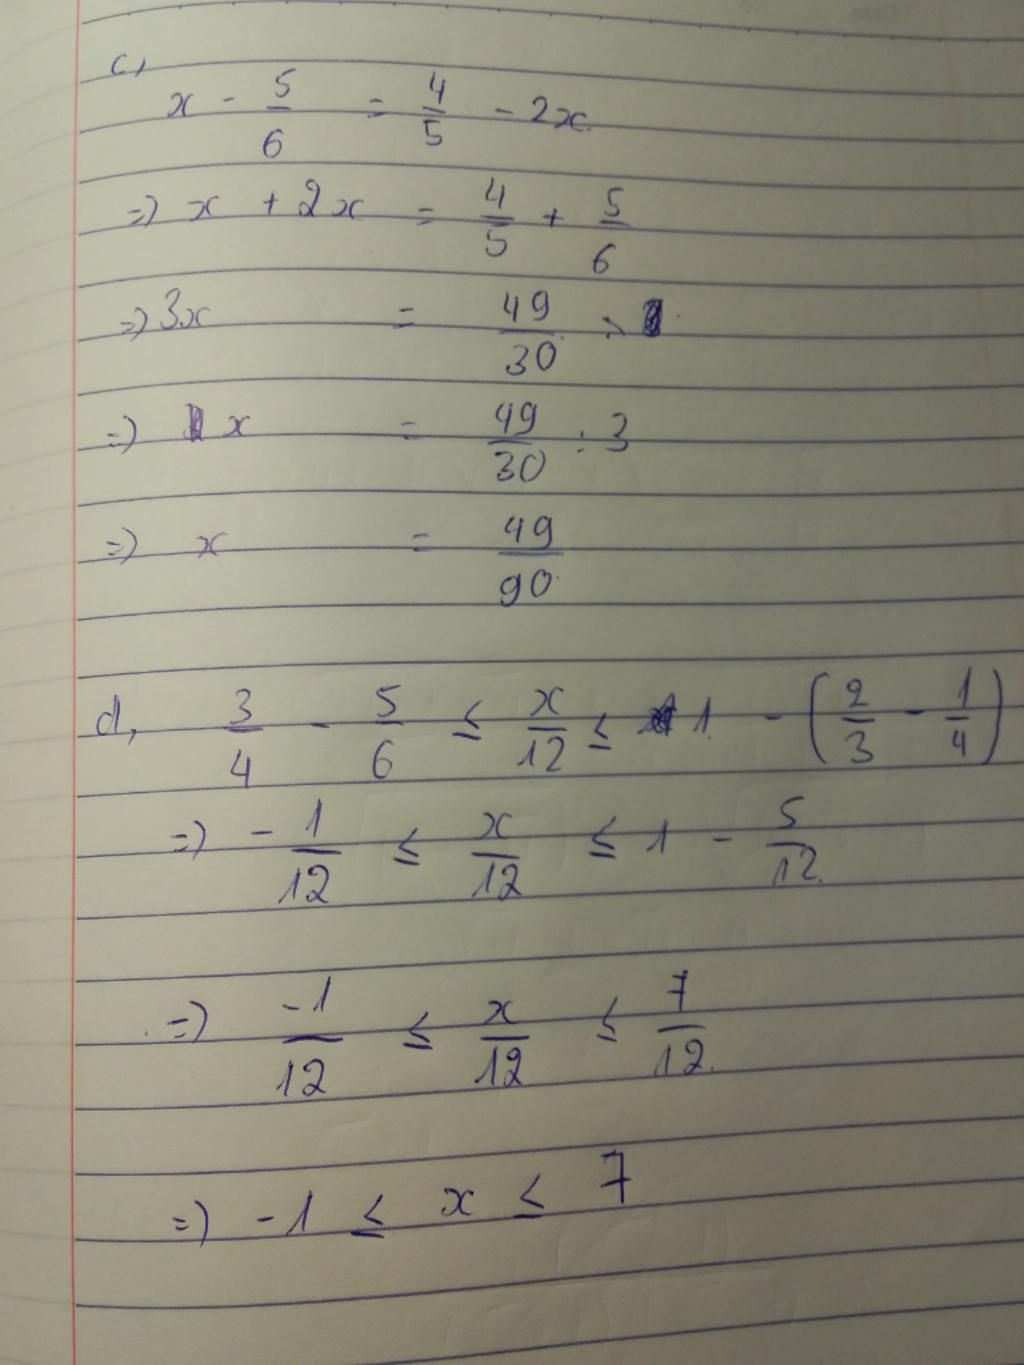 c,
x - 5/6 = 4/5 - 2x
=> x + 2x = 4/5 + 5/6
=> 3x = 49/30
=> x = 49/30 : 3
=> x = 49/90
d, 3/4 - 5/6 ≤ x/12 ≤ 1 - (2/3 - 1/4)
=> - 1/12 ≤ x/12 ≤ 1 - 5/12
=> -1/12 ≤ x/12 ≤ 7/12
=> -1 ≤ x ≤ 7